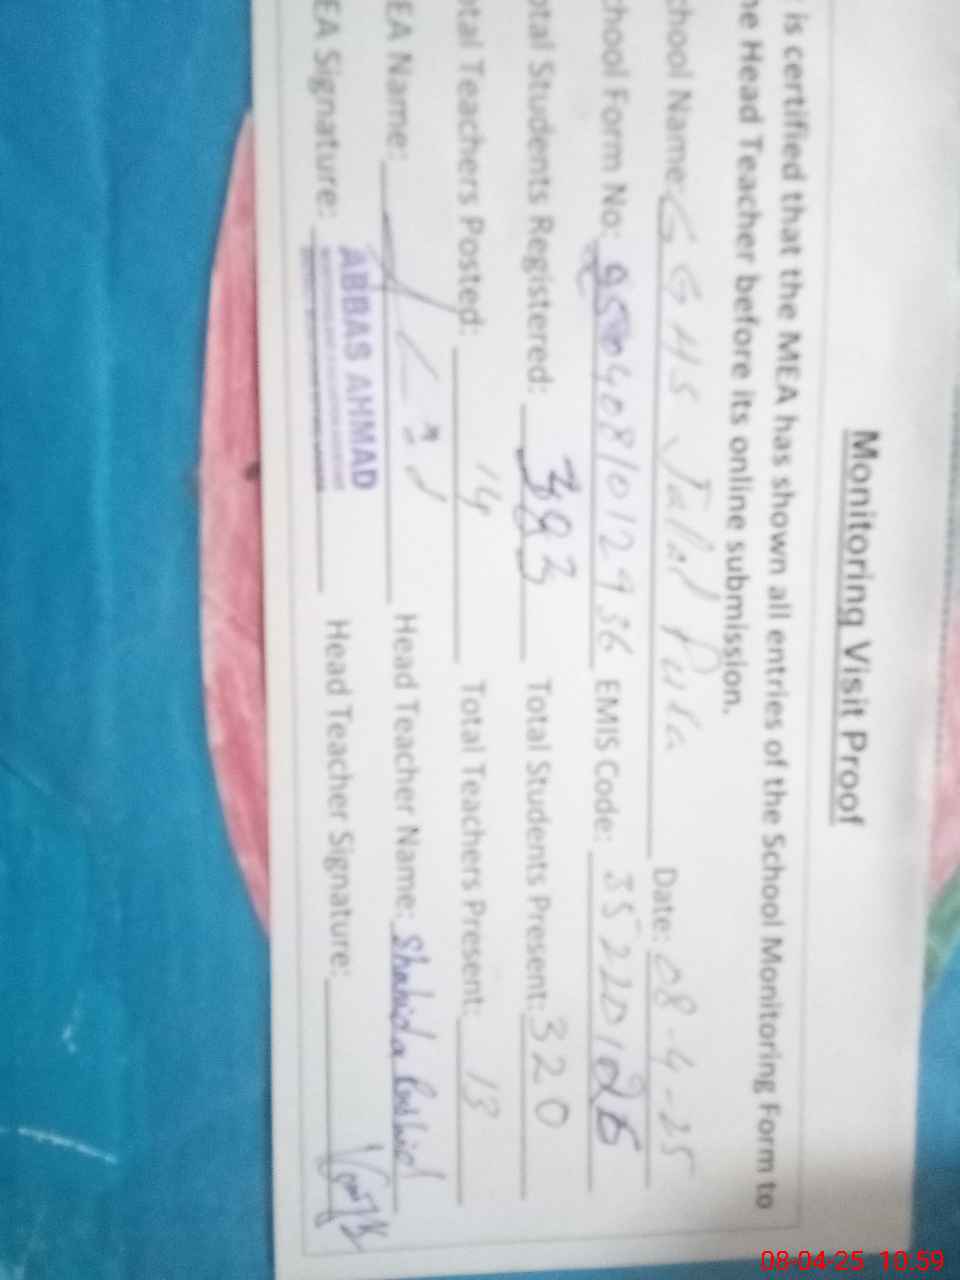 Monitoring Visit Proof
is certified that the MEA has shown all entries of the School Monitoring Form to
he Head Teacher before its online submission.
chool Name: GGHS Jalal Pura Date: 08-4-25
chool Form No: EMIS Code: 35220126
otal Students Registered: 393 Total Students Present: 320
otal Teachers Posted: 14 Total Teachers Present: 13
EA Name: Head Teacher Name: Shahida Rashid
EA Signature: ABBAS AHMAD Head Teacher Signature:
08-04-25 10:59